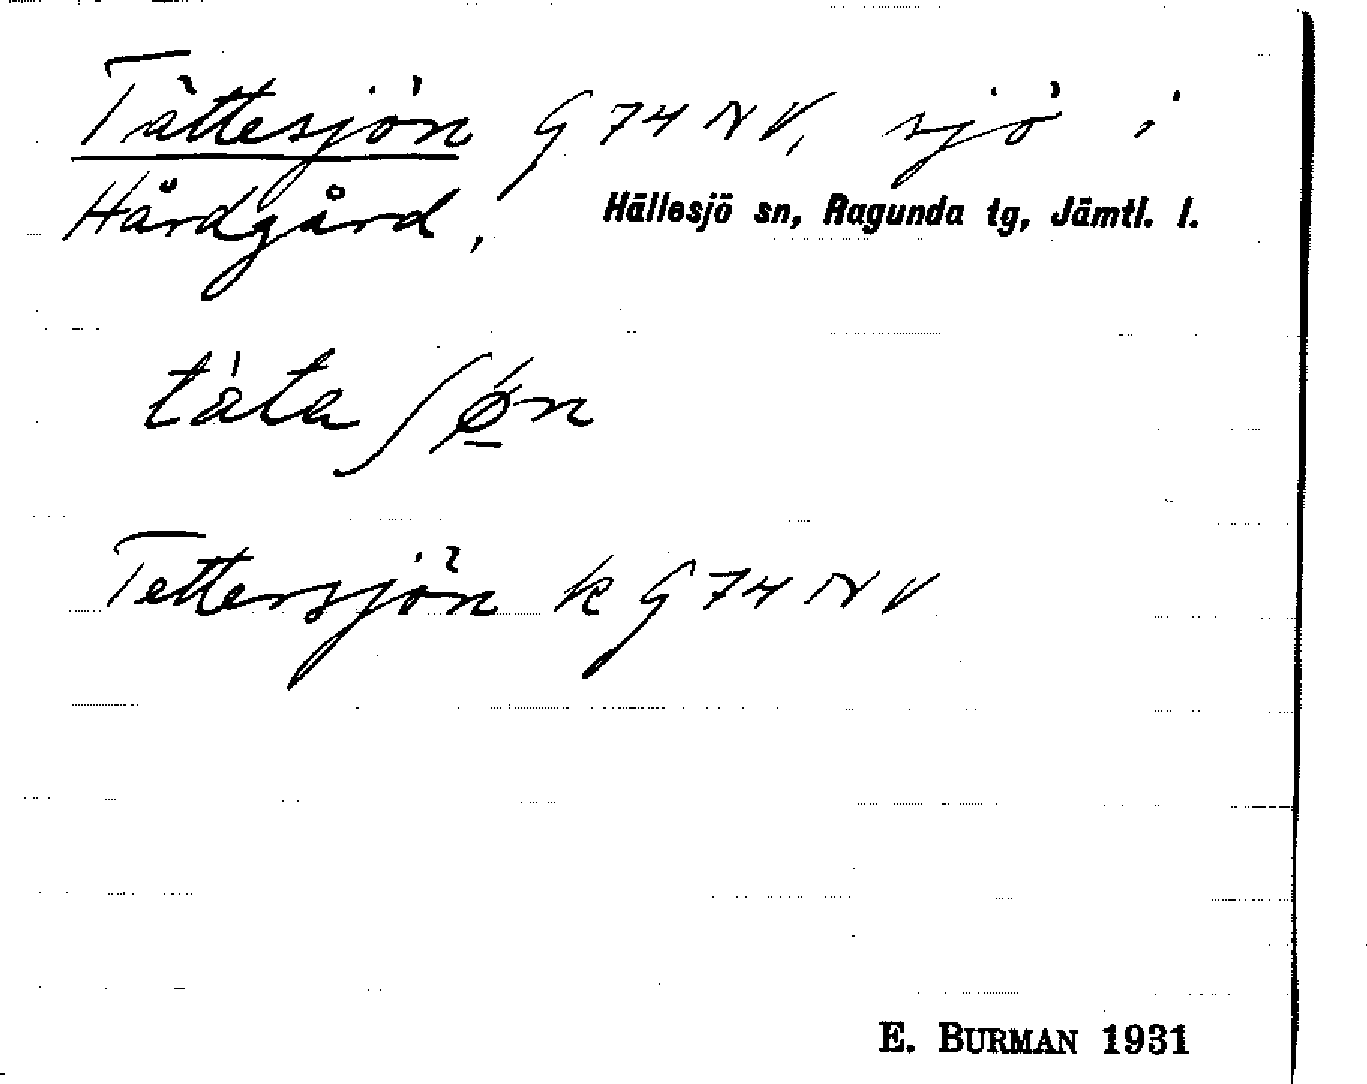 Tättesjön G 74 NV, sjö i
Hårdgård, Hällesjö sn, Ragunda tg, Jämtl. l.
tàta ʃøn
Tettersjön k G 74 NV
E. BURMAN 1931